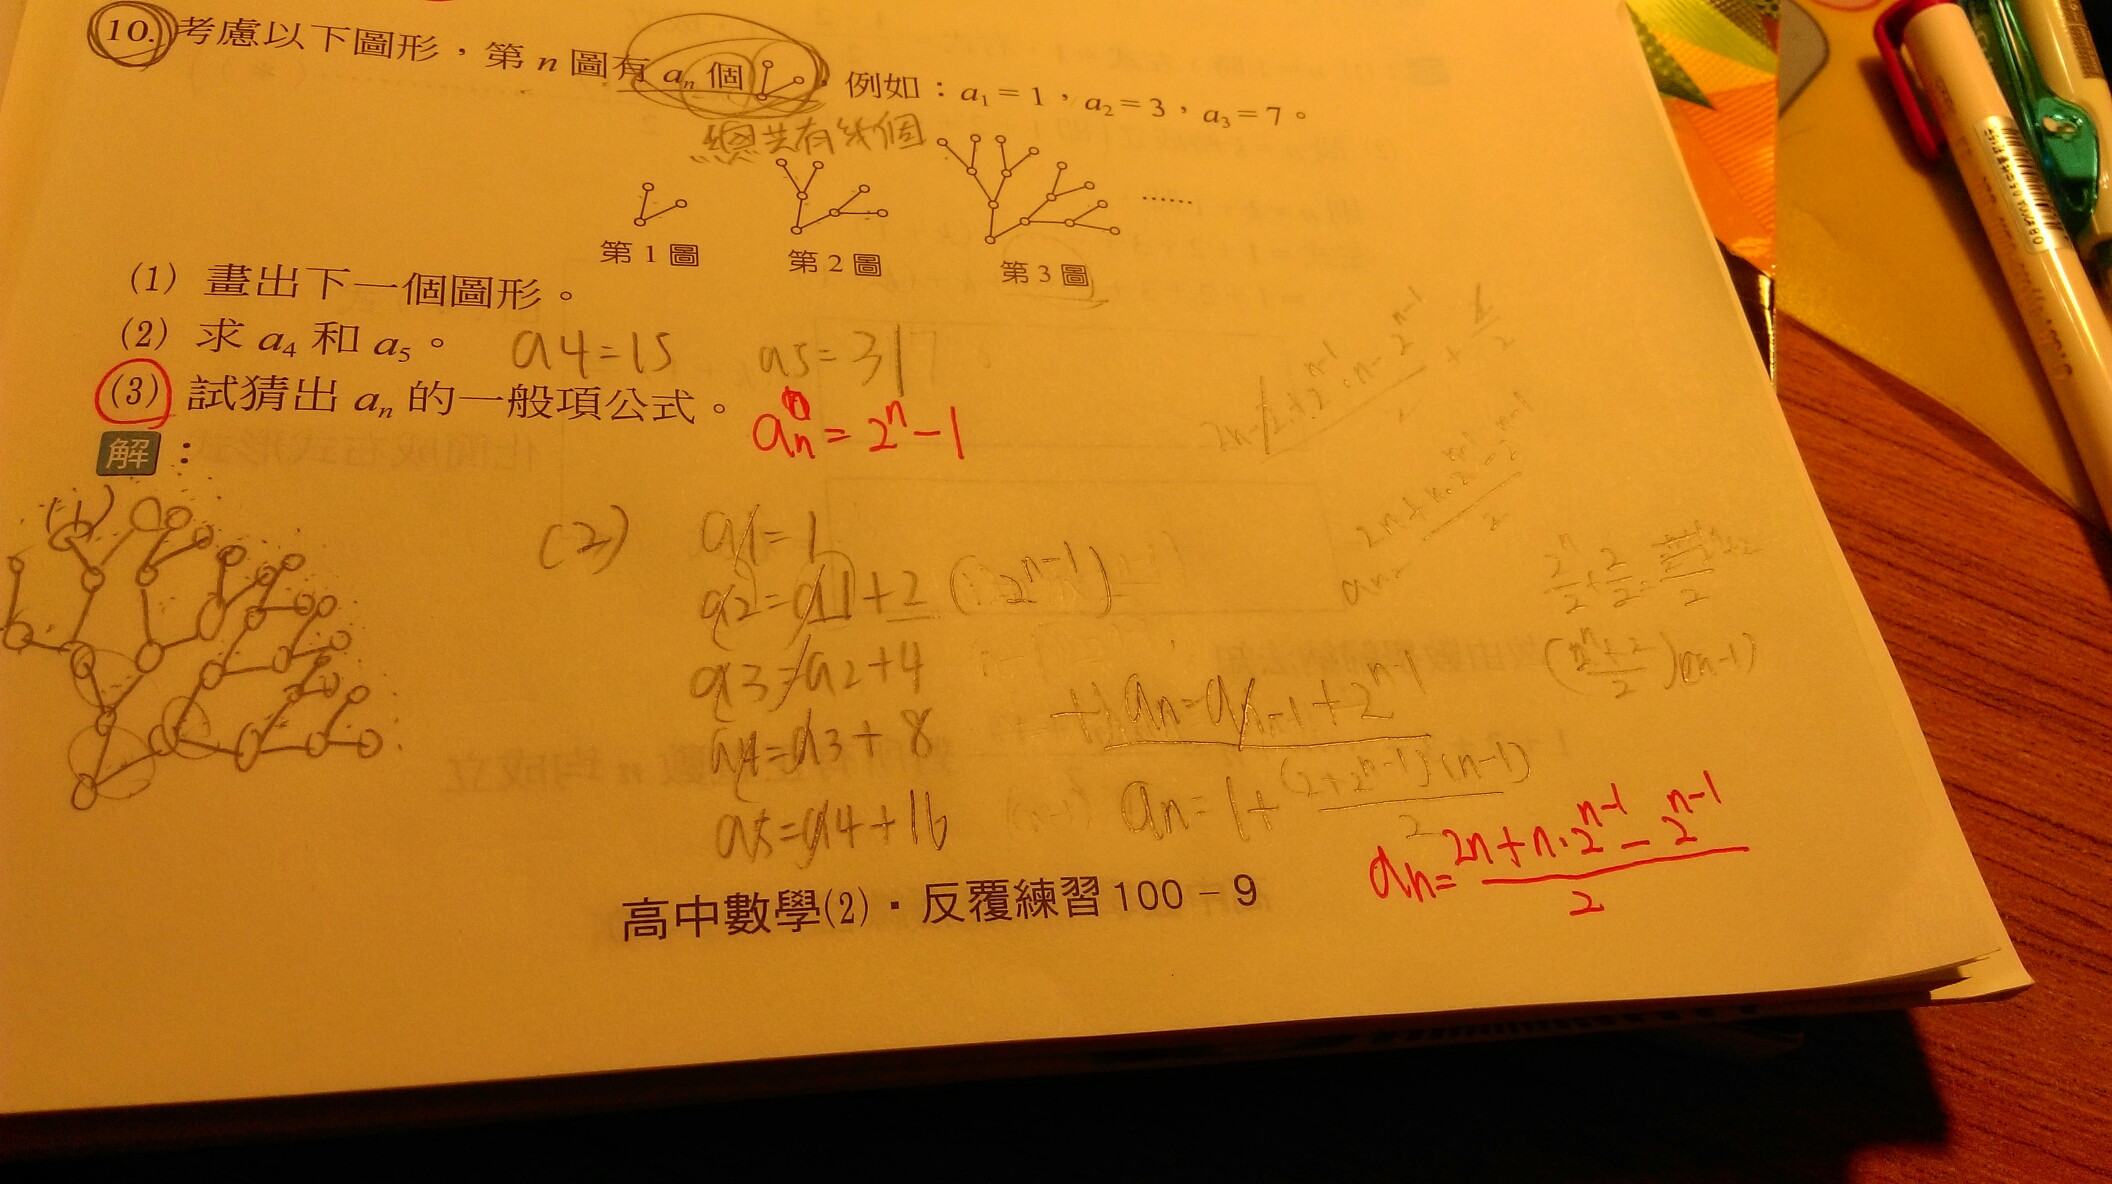 10. 考慮以下圖形，第 n 圖有 aₙ 個 ，例如：a₁ = 1，a₂ = 3，a₃ = 7。
總共有幾個
……
第 1 圖 第 2 圖 第 3 圖
(1) 畫出下一個圖形。
(2) 求 a₄ 和 a₅。 a4=15 a5=31
(3) 試猜出 aₙ 的一般項公式。
aₙ = 2ⁿ-1
解：
(1)
(2) a1=1
a2=a1+2 (2ⁿ⁻¹)
a3=a2+4
a4=a3+8
a5=a4+16
+) aₙ=aₙ₋₁+2ⁿ⁻¹
aₙ=1+(2+2ⁿ⁻¹)(n-1)/2
aₙ=(2n+n·2ⁿ⁻¹-2ⁿ⁻¹)/2
高中數學(2)·反覆練習 100－9